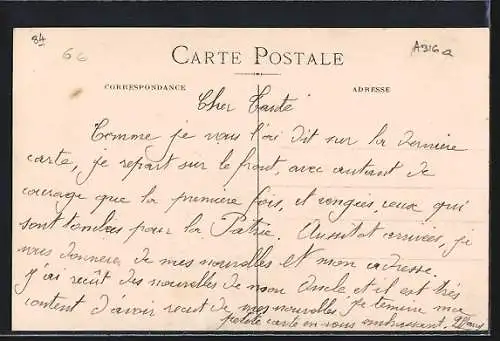 84
66
A316a
CARTE POSTALE
CORRESPONDANCE
ADRESSE
Cher
Comme je vous l'ai dit sur la dernière
carte, je repart sur le front, avec autant de
courage que la première fois, et vengier ceux qui
sont tombés pour la Patrie. Aussitot arrivées, je
vous donnerer de mes nouvelles et mon adresse.
J'ai recût des nouvelles de mon Oncle et il est très
content d'avoir recut de mes nouvelles je termine ma
petite carte en vous embrassant.